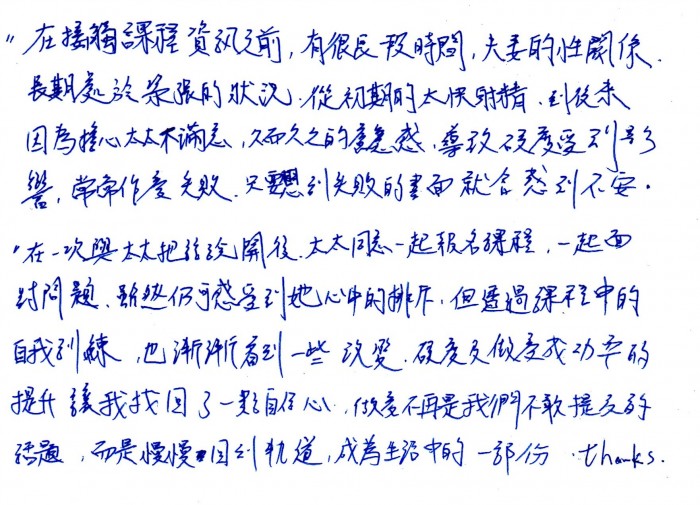 "在接觸課程資訊之前,有很長一段時間,夫妻的性關係.
長期處於緊張的狀況.從初期的太快射精.到後來
因為擔心太太不滿意,久而久之的焦慮感,導致硬度受到影
響,常常作愛失敗.只要想到失敗的畫面就會感到不安.
"在一次與太太把話說開後.太太同意一起報名課程,一起面
對問題.雖然仍可感受到她心中的排斥.但透過課程中的
自我訓練,也漸漸看到一些改變.硬度及做愛成功率的
提升讓我找回了一點自信心.做愛不再是我們不敢提及的
話題,而是慢慢回到軌道,成為生活中的一部份.thanks.